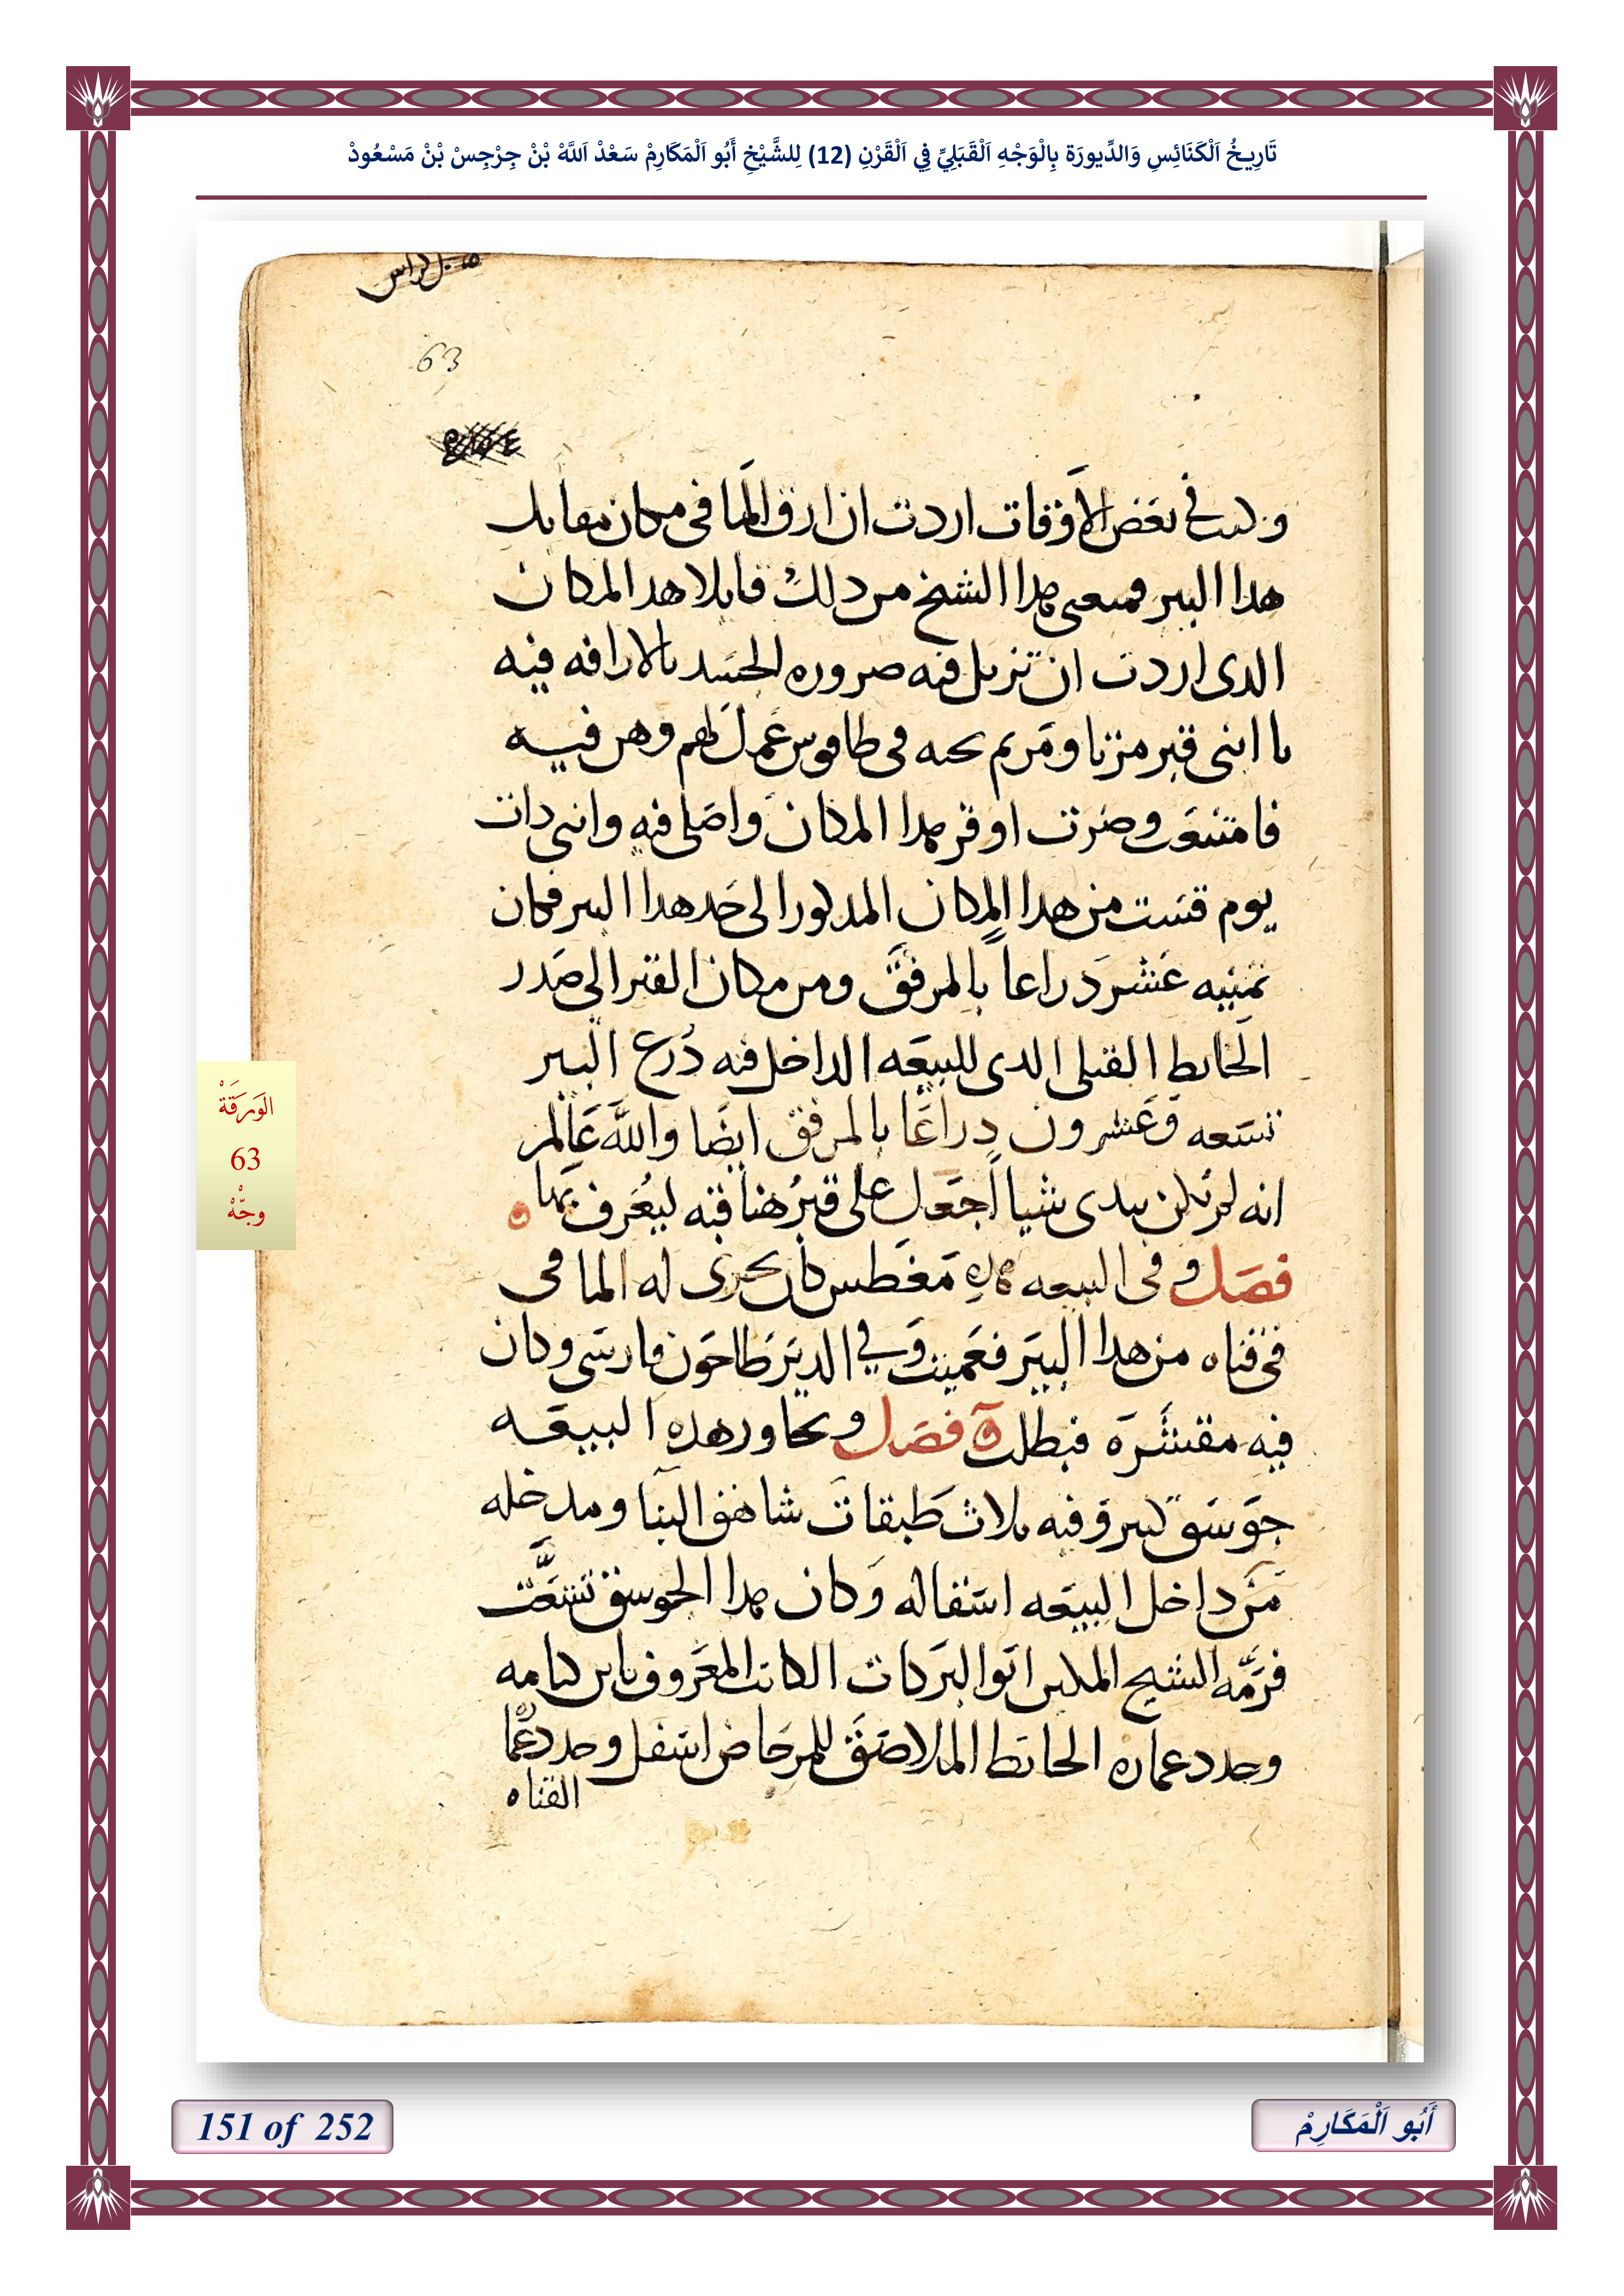 تَارِيخُ اَلْكَنَائِسِ وَالدِّيورَة بِالْوَجْهِ اَلْقَبَلِيِّ فِي اَلْقَرْنِ (12) لِلشَّيْخِ أَبُو اَلْمَكَارِمْ سَعْدْ اَللَّهْ بْنْ جِرْجِسْ بْنْ مَسْعُودْ
63
وكنت في بعض الأوقات اردت ان ارق الما في مكان مقابل
هدا البير فمنعنى هدا الشيخ من دلك قايلا هدا المكان
الدى اردت ان تزيل فيه ضروره الجسد بالاراقه فيه
يا ابنى قبر مرتا ومريم تحته في طافوس عمل لهم وهن فيه
فامتنعت وصرت اوقر هدا المكان واصلى فيه واننى دات
يوم قست من هدا المكان المدكور الى حد هدا البير فكان
تمنيه عشر دراعاً بالمرفق ومن مكان القبر الى صدر
الحايط القبلى الدى للبيعه الداخل فيه درع البير
تسعه وعشرون دراعًا بالمرفق ايضا والله عالم
انه لم يكن بيدى شيا اجعل على قبرهنا فيه ليعرف بها ه
فصل وفى البيعه هده مغطس كان يجرى له الما فى
فى قناه من هدا البير فعميت وفي الدير طاحون فارسى وكان
فيه مقشره فبطلت ه فصل وتجاور هده البيعه
جوسق كبير وفيه تلات طبقات شاهق البنا ومدخله
من داخل البيعه اسفاله وكان هدا الجوسق تشعت
فرمه الشيح المكين ابو البركات الكاتب المعروف بابن كتامه
وجدد عماره الحايط الملاصق للمرحاض اسفل وجدد
القناه
الوَرَقَةْ
63
وجّهْ
151 of 252
أَبُو اَلْمَكَارِمْ